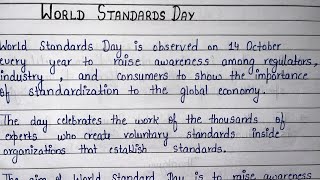 WORLD STANDARDS DAY
World Standards Day is observed on 14 October
every year to raise awareness among regulators,
industry , and consumers to show the importance
of standardization to the global economy.
The day celebrates the work of the thousands of
experts who create voluntary standards inside
organizations that establish standards.
The aim of World Standard Day is to raise awareness